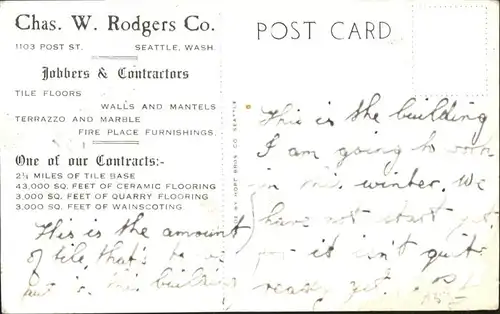 Chas. W. Rodgers Co.
1103 POST ST. SEATTLE, WASH.
Jobbers & Contractors
TILE FLOORS
WALLS AND MANTELS
TERRAZZO AND MARBLE
FIRE PLACE FURNISHINGS.
One of our Contracts:-
2½ MILES OF TILE BASE
43,000 SQ. FEET OF CERAMIC FLOORING
3,000 SQ. FEET OF QUARRY FLOORING
3,000 SQ. FEET OF WAINSCOTING
This is the amount
of tile that's to
put in the building
BY HOPF BROS CO. SEATTLE
POST CARD
This is the building
I am going to work
in this winter. We
have not start yet
for it isn't quite
ready yet.